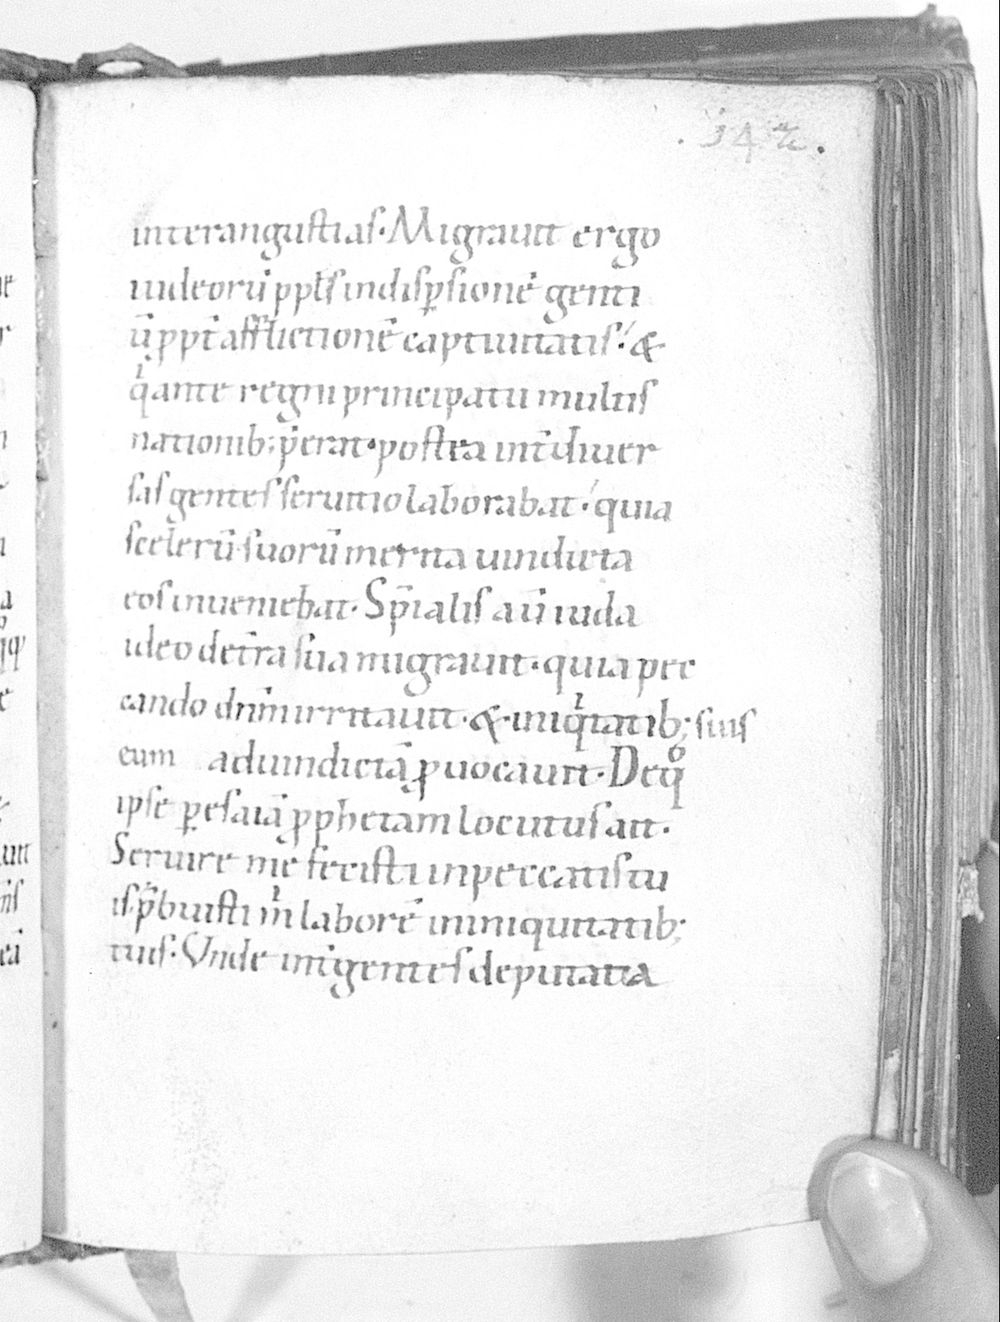 .342.
interangustias. Migrauit ergo
iudeorū ppłs indisp̱sionē genti
ū ppt̄ afflictionē captiuitatis. &
qͥ ante regni principatu multis
nationib; p̄erat. postea int̄ diuer
sas gentes seruitio laborabat. quia
scelerū suorū merita uindicta
eos inueniebat. Sp̄ialis aū iuda
ideo det̄ra sua migrauit. quia pec
cando dnm̄ irritauit. & iniqͥtatib; suis
eum aduindictā ꝓuocauit. Deqͦ
ipse p̱ esaiā ꝓphetam locutus ait.
Seruire me fecisti inpeccatis tu
is. p̄buisti mͥ laborē ininiquitatib;
tuis. Unde int̄ gentes deputata